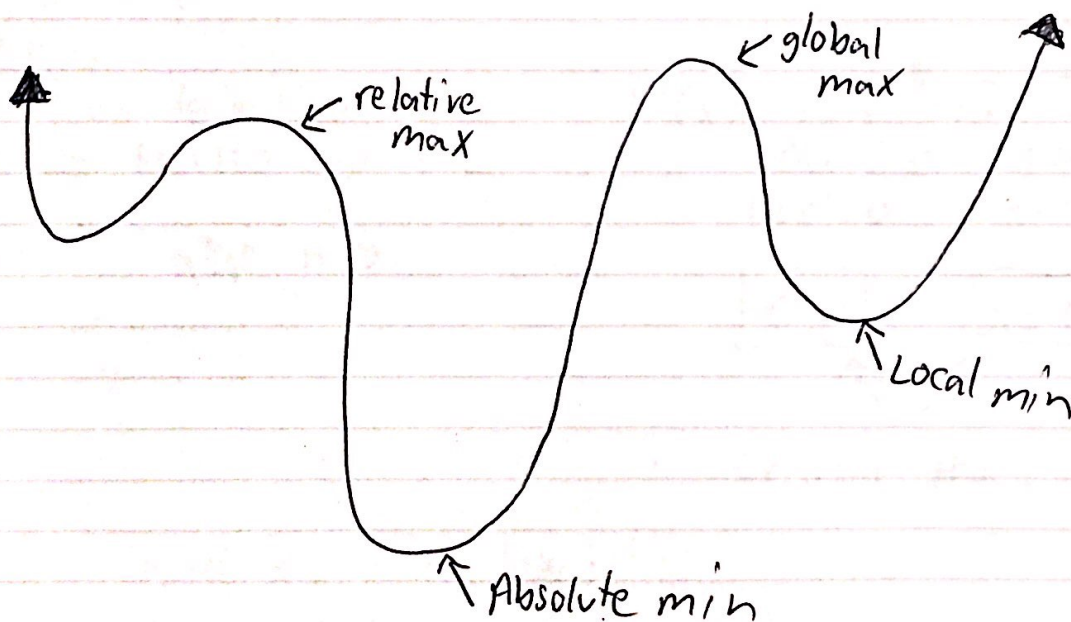 relative
max
global
max
Local min
Absolute min